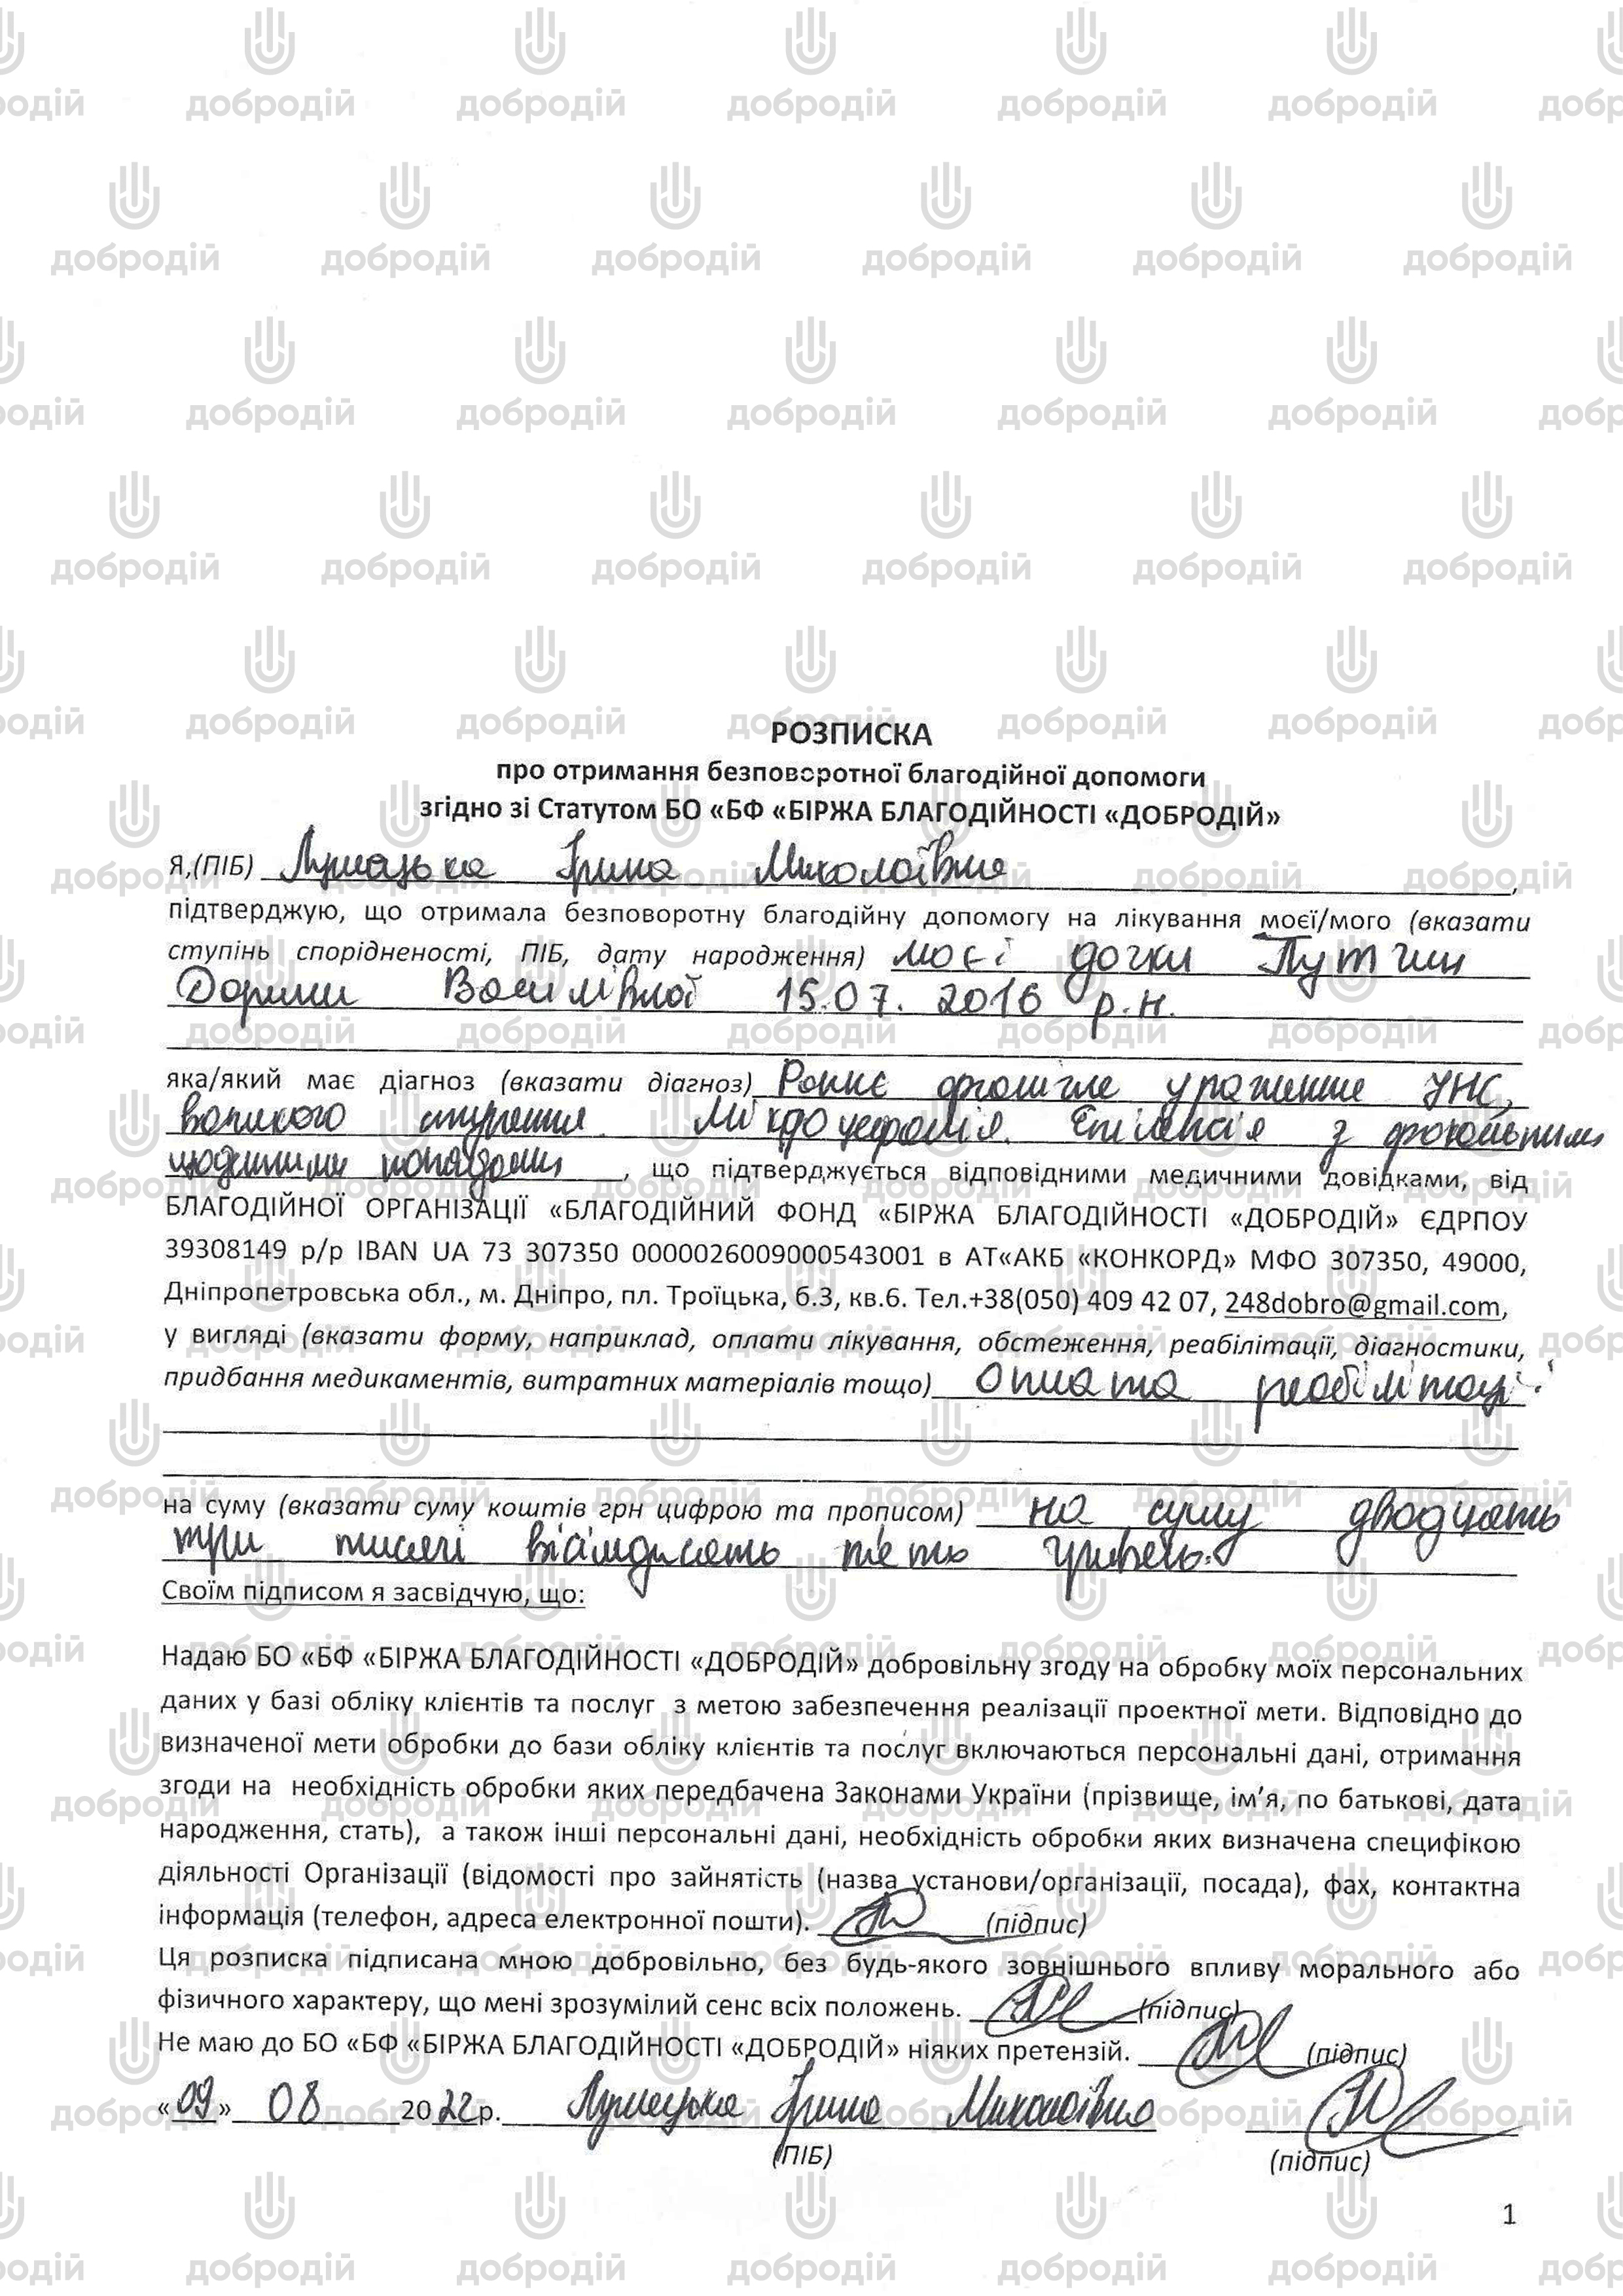 РОЗПИСКА
про отримання безповоротної благодійної допомоги
згідно зі Статутом БО «БФ «БІРЖА БЛАГОДІЙНОСТІ «ДОБРОДІЙ»
Я,(ПІБ) Ірина Миколаївна,
підтверджую, що отримала безповоротну благодійну допомогу на лікування моєї/мого (вказати
ступінь спорідненості, ПІБ, дату народження) моєї дочки
Дорини Василівної 15.07.2016 р.н.
яка/який має діагноз (вказати діагноз) Раннє органічне ураження ЦНС,
Мікроцефалія. Епілепсія з фокальними
щоденними нападами, що підтверджується відповідними медичними довідками, від
БЛАГОДІЙНОЇ ОРГАНІЗАЦІЇ «БЛАГОДІЙНИЙ ФОНД «БІРЖА БЛАГОДІЙНОСТІ «ДОБРОДІЙ» ЄДРПОУ
39308149 р/р IBAN UA 73 307350 0000026009000543001 в АТ«АКБ «КОНКОРД» МФО 307350, 49000,
Дніпропетровська обл., м. Дніпро, пл. Троїцька, б.3, кв.6. Тел.+38(050) 409 42 07, 248dobro@gmail.com,
у вигляді (вказати форму, наприклад, оплати лікування, обстеження, реабілітації, діагностики,
придбання медикаментів, витратних матеріалів тощо) Оплата реабілітації.
на суму (вказати суму коштів грн цифрою та прописом) на суму двадцять
три тисячі вісімдисять пять гривень.
Своїм підписом я засвідчую, що:
Надаю БО «БФ «БІРЖА БЛАГОДІЙНОСТІ «ДОБРОДІЙ» добровільну згоду на обробку моїх персональних
даних у базі обліку клієнтів та послуг з метою забезпечення реалізації проектної мети. Відповідно до
визначеної мети обробки до бази обліку клієнтів та послуг включаються персональні дані, отримання
згоди на необхідність обробки яких передбачена Законами України (прізвище, ім’я, по батькові, дата
народження, стать), а також інші персональні дані, необхідність обробки яких визначена специфікою
діяльності Організації (відомості про зайнятість (назва установи/організації, посада), фах, контактна
інформація (телефон, адреса електронної пошти). (підпис)
Ця розписка підписана мною добровільно, без будь-якого зовнішнього впливу морального або
фізичного характеру, що мені зрозумілий сенс всіх положень. (підпис)
Не маю до БО «БФ «БІРЖА БЛАГОДІЙНОСТІ «ДОБРОДІЙ» ніяких претензій. (підпис)
«09» 08 2022р. Ірина Миколаївна
(ПІБ) (підпис)
1
добродій